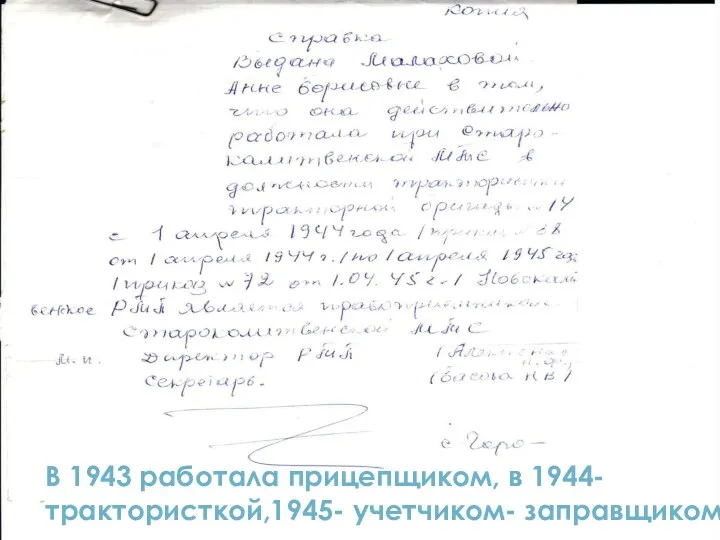 Копия
Справка
Выдана Малаховой
Анне Борисовне в том,
что она действительно
работала при Старо-
калитвенской МТС в
должности трактористки
тракторной бригады №14
с 1 апреля 1944 года /приказ № 68
от 1 апреля 1944 г./ по 1 апреля 1945 год
/приказ №72 от 1.04.45 г./ Новокалит
венское РТП является правоприемником
Старокалитвенской МТС
М.П. Директор РТП
Секретарь. (Басова НВ)
с Горо-
В 1943 работала прицепщиком, в 1944-
трактористкой,1945- учетчиком- заправщиком